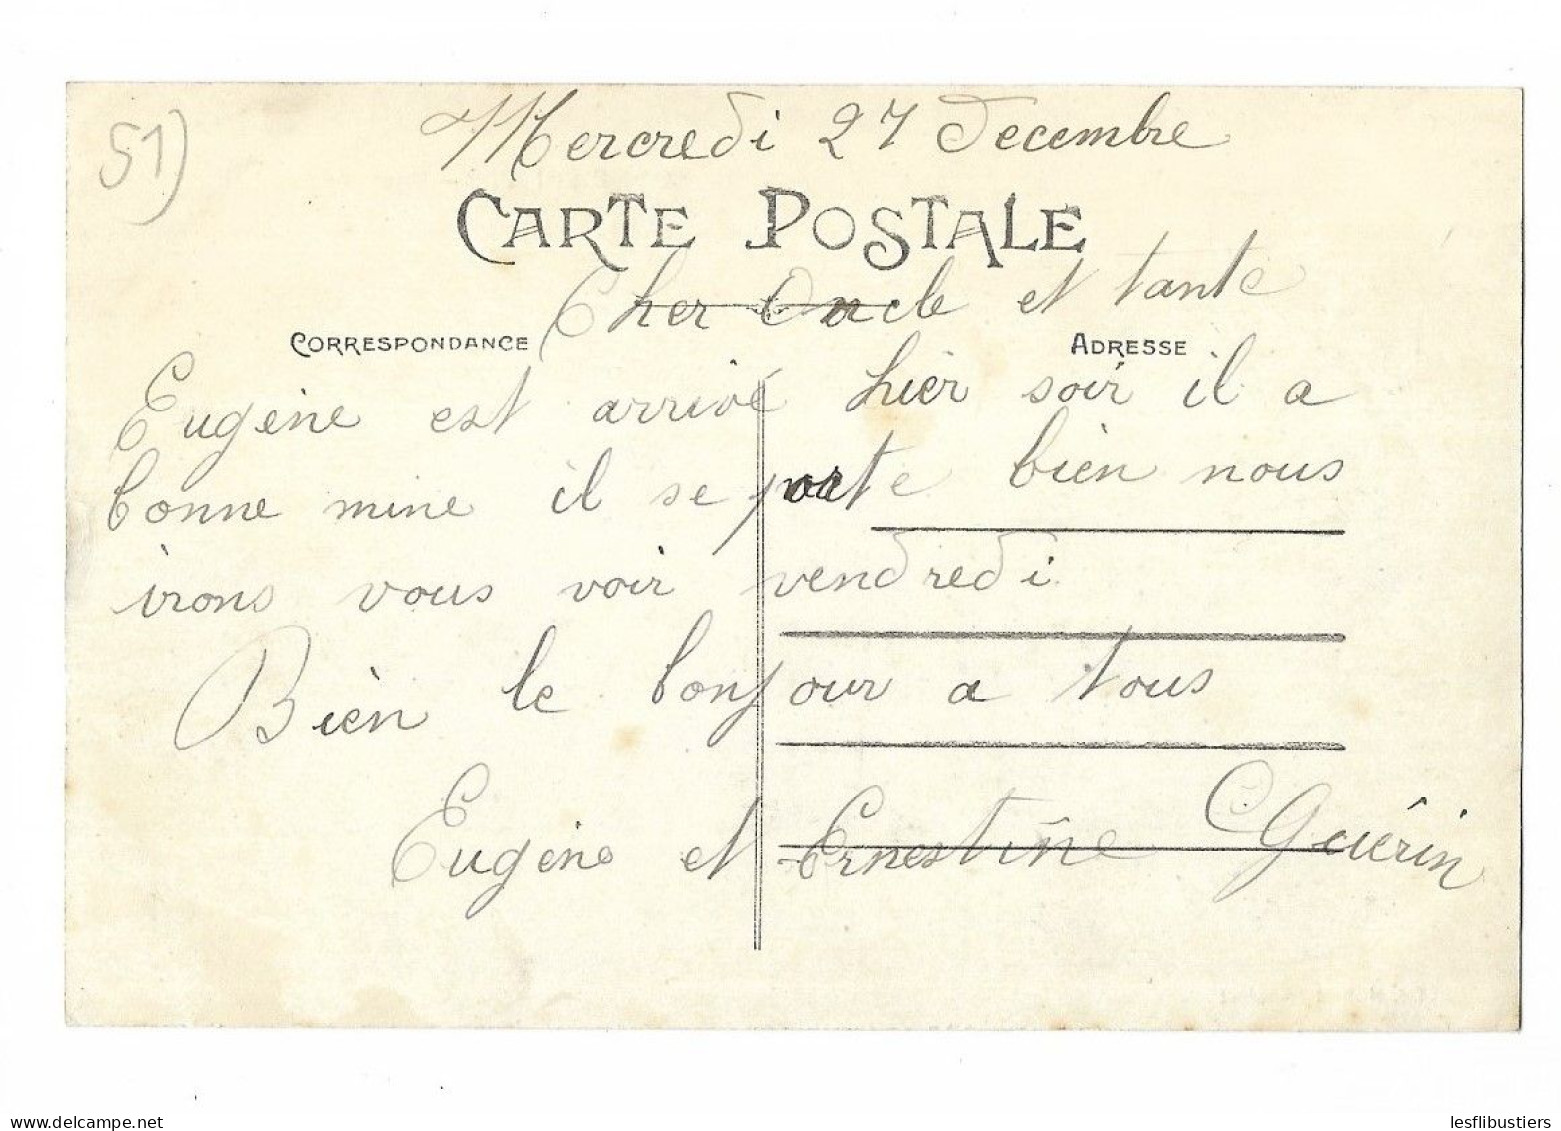 51)
Mercredi 27 Decembre
CARTE POSTALE
Cher Oncle et tante
CORRESPONDANCE ADRESSE
Eugène est arrivé hier soir il a
bonne mine il se porte bien nous
irons vous voir vendredi
Bien le bonjour a tous
Eugène et Ernestine Guérin
lesflibustiers